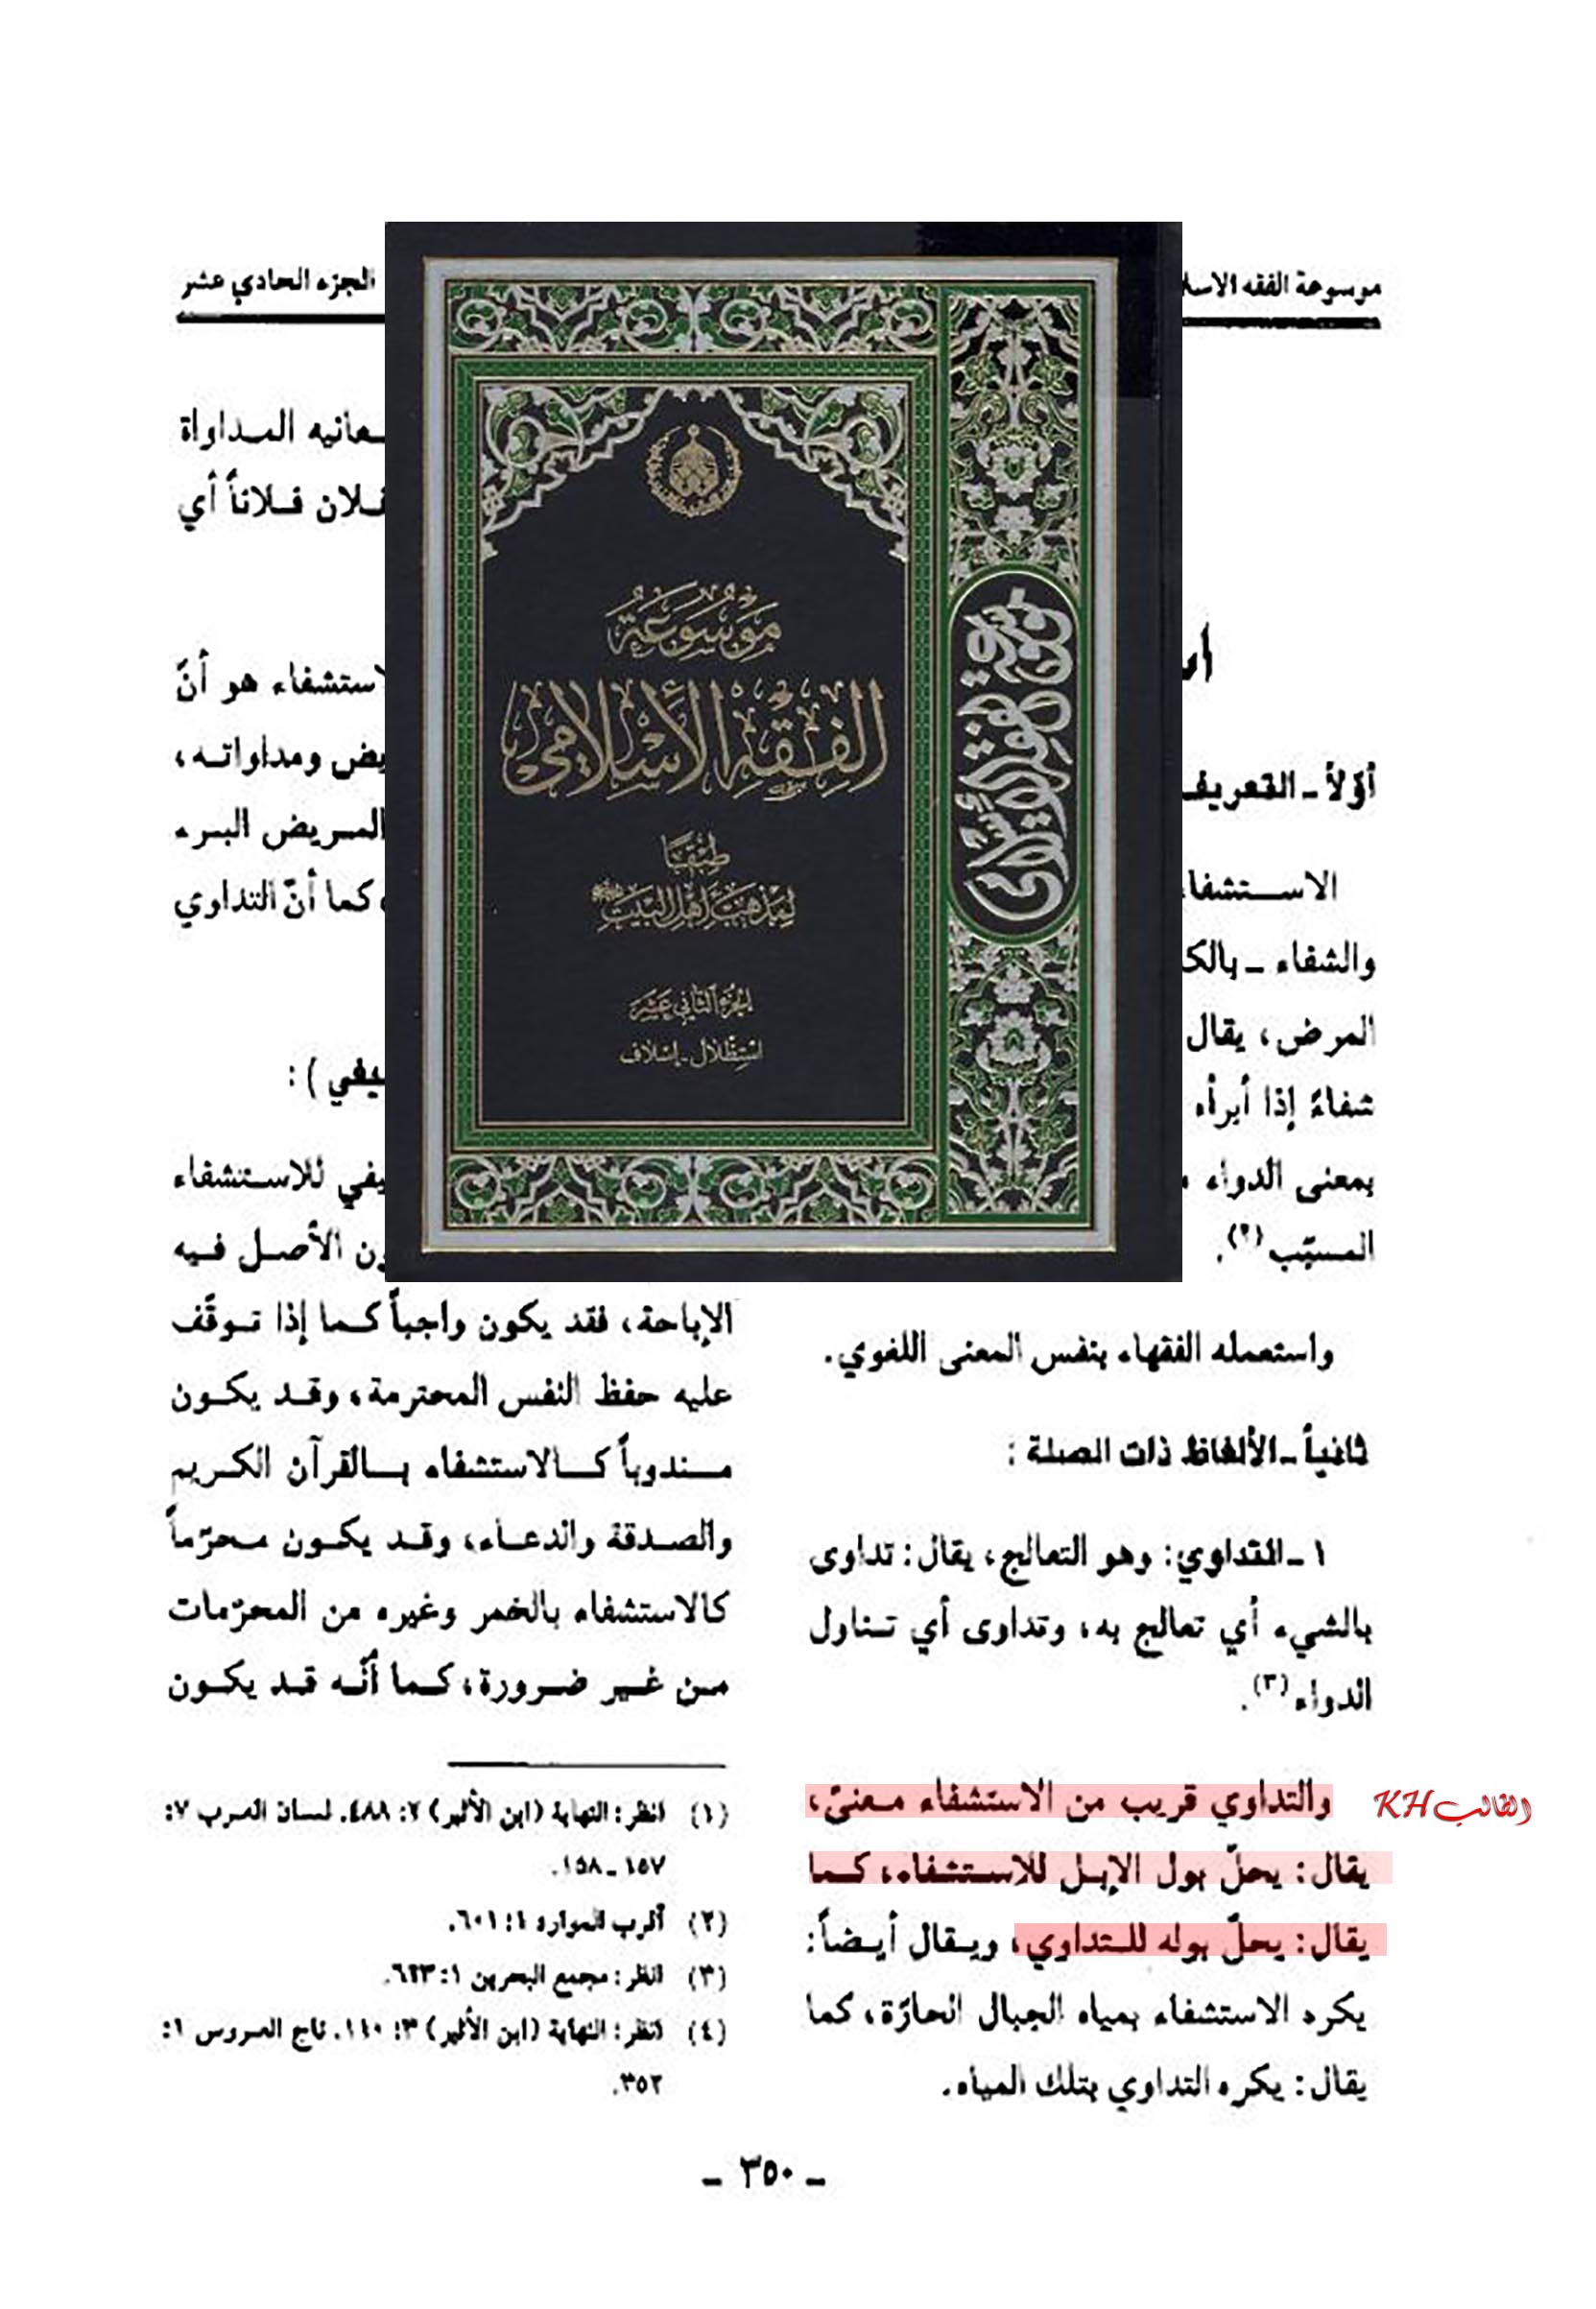 موسوعة الفقه الاسلا
الجزء الحادي عشر
أوّلاً ـ التعريف
الاستشفاء
والشفاء ـ بالكـ
المرض، يقال
شفاءً إذا أبرأه
بمعنى الدواء
المسبّب (٢).
واستعمله الفقهاء بنفس المعنى اللغوي.
ثانياً ـ الألفاظ ذات الصلة:
١ ـ التداوي: وهو التعالج، يقال: تداوى
بالشيء أي تعالج به، وتداوى أي تناول
الدواء (٣).
والتداوي قريب من الاستشفاء معنىً،
يقال: يحلّ بول الإبل للاستشفاء، كما
يقال: يحلّ بوله للتداوي، ويقال أيضاً:
يكره الاستشفاء بمياه الجبال الحارّة، كما
يقال: يكره التداوي بتلك المياه.
ـعانيه المداواة
فلان فلاناً أي
ستشفاء هو أنّ
يض ومداواته،
المريض البرء
كما أنّ التداوي
ـيفي):
ـيفي للاستشفاء
ون الأصل فيه
الإباحة، فقد يكون واجباً كما إذا توقّف
عليه حفظ النفس المحترمة، وقد يكون
مندوباً كالاستشفاء بالقرآن الكريم
والصدقة والدعاء، وقد يكون محرّماً
كالاستشفاء بالخمر وغيره من المحرّمات
من غير ضرورة، كما أنّه قد يكون
(١) انظر: النهاية (ابن الأثير) ٢: ٤٨٨. لسان العرب ٧:
١٥٧ ـ ١٥٨.
(٢) أقرب الموارد ١: ٦٠١.
(٣) انظر: مجمع البحرين ١: ٦٢٣.
(٤) انظر: النهاية (ابن الأثير) ٣: ١١٠. تاج العروس ١:
٣٥٢.
ـ ٣٥٠ ـ
موسوعة
الفقه الإسلامي
طبقا
لمذهب أهل البيت
الجزء الثاني عشر
استظلال ـ إسلاف
موسوعة الفقه الإسلامي
الطالب KH